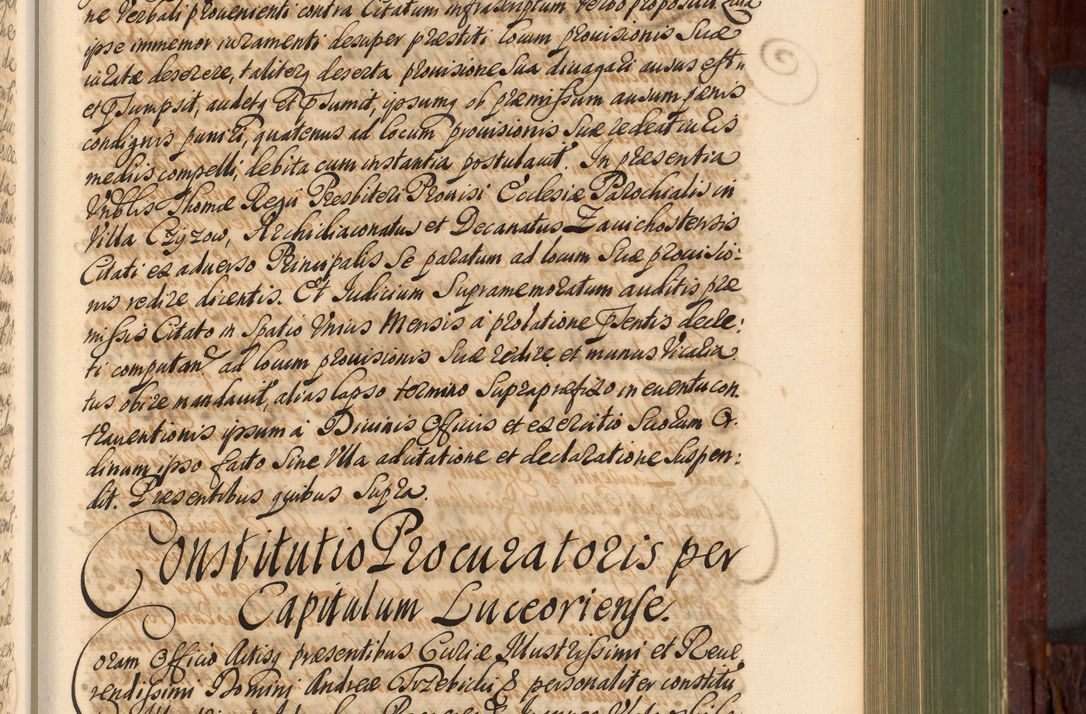 ne Verbali provenienti contra Citatum infrascriptum verbo proposita
ipse immemor iuramenti desuper præstiti locum prouisionis Suæ
iuratæ deserere, taliterq deserta prouisione Sua diuagari ausus est
et præsumpsit, audetq et præsumit, ipsumq ob præmissum ausum pœnis
condignis puniri, quatenus ad locum prouisionis Suæ redeat iuris
mediis compelli, debita cum instantia postulauit. In præsentia
Vnblis Thomæ Regii Presbiteri Prouisi Ecclesiæ Parochialis in
Villa Czyzow, Archidiaconatus et Decanatus Zauichostensis
Citati ex aduerso Principalis Se paratum ad locum Suæ prouisio:
nis redire dicentis. Et Iudicium Supramemoratum auditis præ
missis Citato in Spatio Vnius Mensis a prolatione præsentis decre:
ti computan. ad locum prouisionis Suæ redire et munus Vicaria
tus obire mandauit, alias lapso termino Supraprefixo in euentu con
trauentionis ipsum a Diuinis Officiis et exercitio Sacrorum Or
dinum ipso facto Sine Vlla ad citatione et declaratione Suspen:
dit. Præsentibus quibus Supra.
Constitutio Procuratoris per
Capitulum Luceoriense.
Coram Officio Actisq præsentibus Curiæ Illustrissimi et Reue
rendissimi Domini Andreæ Trzebicki &. personaliter constitu